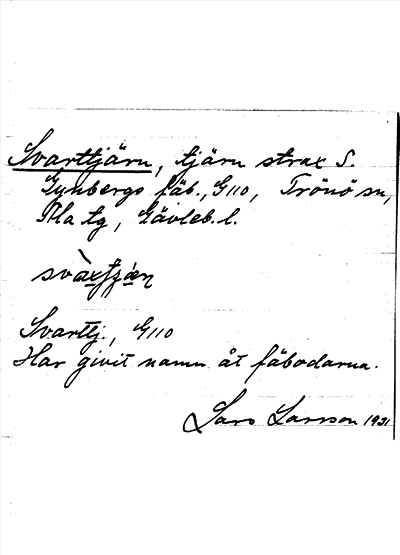 Svarttjärn, tjärn strax S.
Gynbergs fäb., G110, Trönö sn,
Ala tg, Gävleb. l.
Svarttj., G110
Har givit namn åt fäbodarna.
Lars Larsson 1931